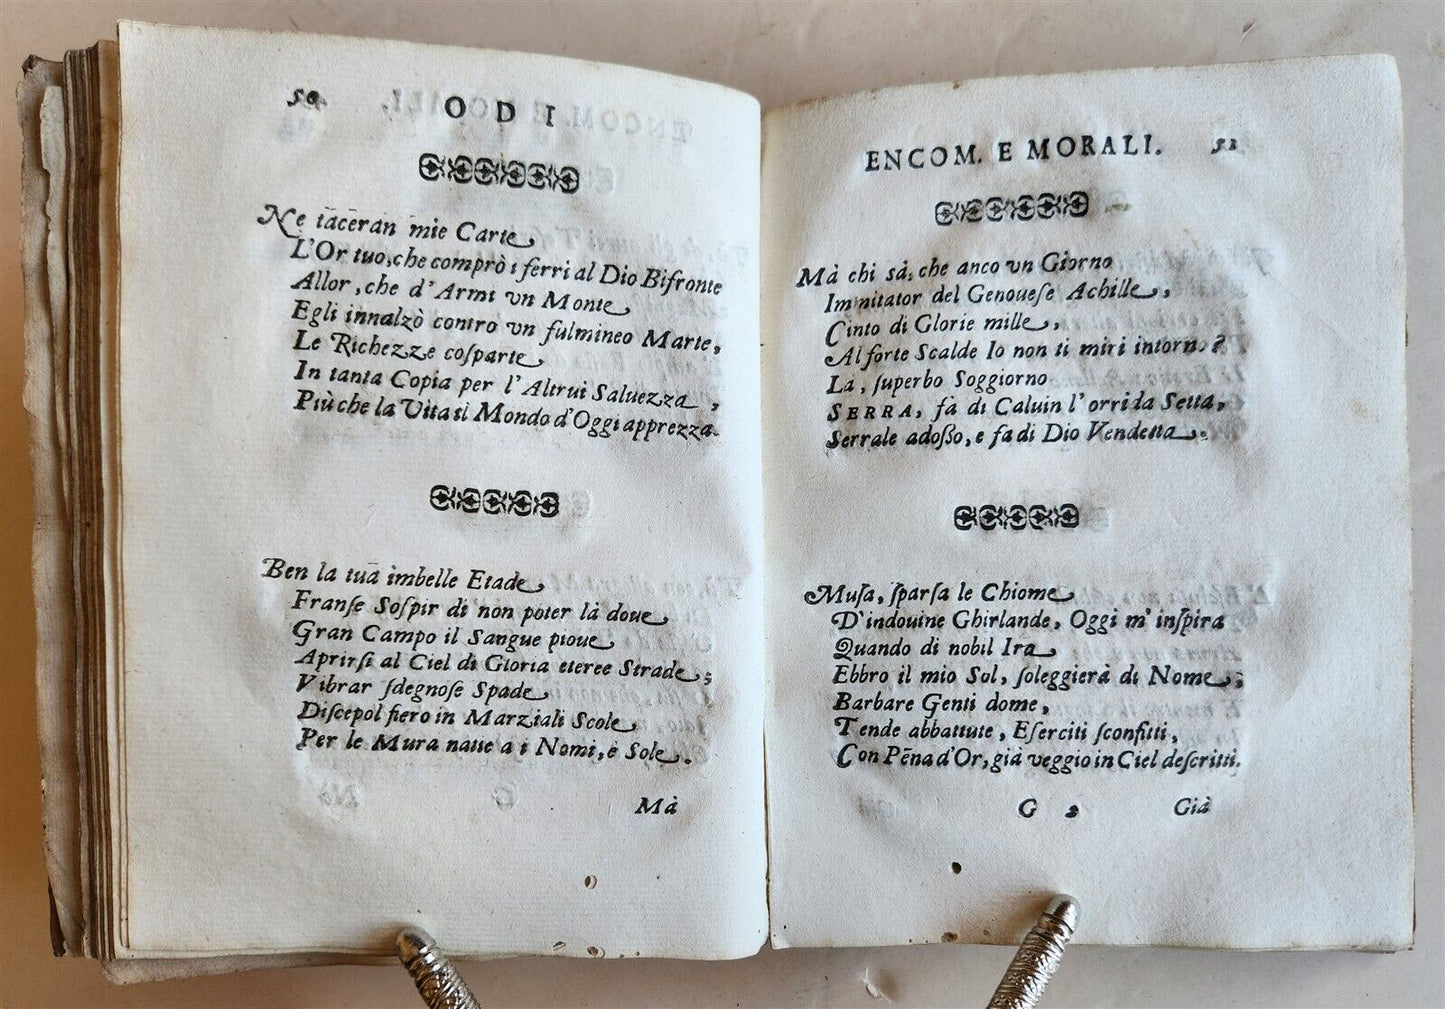 50 ODI
Ne tācerān mie Carte
L'Or tuo, che comprò i ferri al Dio Bifronte
Allor, che d'Armi vn Monte
Egli innalzò contro vn fulmineo Marte,
Le Richezze coſparte
In tanta Copia per l'Altrui Saluezza,
Più che la Vita il Mondo d'Oggi apprezza.
Ben la tuā imbelle Etade
Franſe Soſpir di non poter là doue
Gran Campo il Sangue pioue
Aprirſi al Ciel di Gloria eteree Strade;
Vibrar ſdegnoſe Spade
Diſcepol fiero in Marziali Scole
Per le Mura natte a i Nomi, e Sole.
Mà
ENCOM. E MORALI. 51
Mà chi sà, che anco vn Giorno
Immitator del Genoueſe Achille,
Cinto di Glorie mille,
Al forte Scalde Io non ti miri intorno?
Là, ſuperbo Soggiorno
SERRA, fà di Caluin l'orrida Setta,
Serrale adoſſo, e fa di Dio Vendetta.
Muſa, ſparſa le Chiome
D'indouine Ghirlande, Oggi m'inſpira
Quando di nobil Ira
Ebbro il mio Sol, ſoleggierà di Nome;
Barbare Genti dome,
Tende abbattute, Eſerciti ſconfitti,
Con Pēna d'Or, già veggio in Ciel deſcritti.
G 2 Già